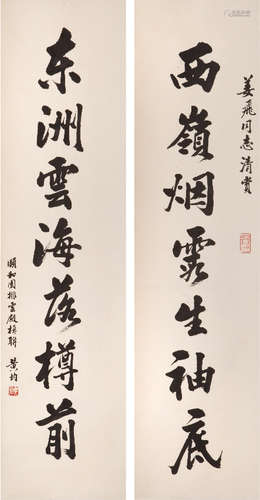 姜飛同志清賞
西嶺烟霞生袖底
东洲雲海落樽前
頤和園排雲殿楹聯 黄均